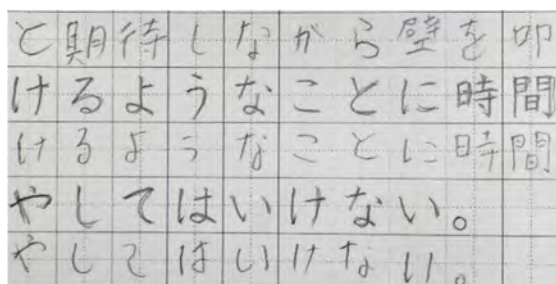 と期待しながら壁を叩
けるようなことに時間
けるようなことに時間
やしてはいけない。
やしてはいけない。